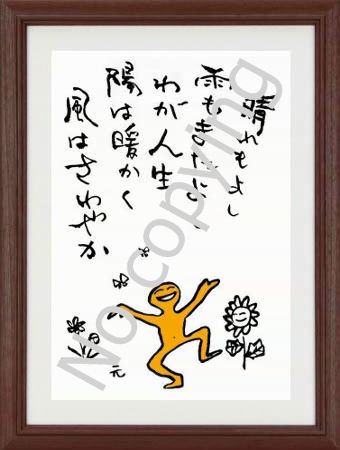 晴れもよし
雨もまたよし
わが人生
陽は暖かく
風はさわやか
元
No copying